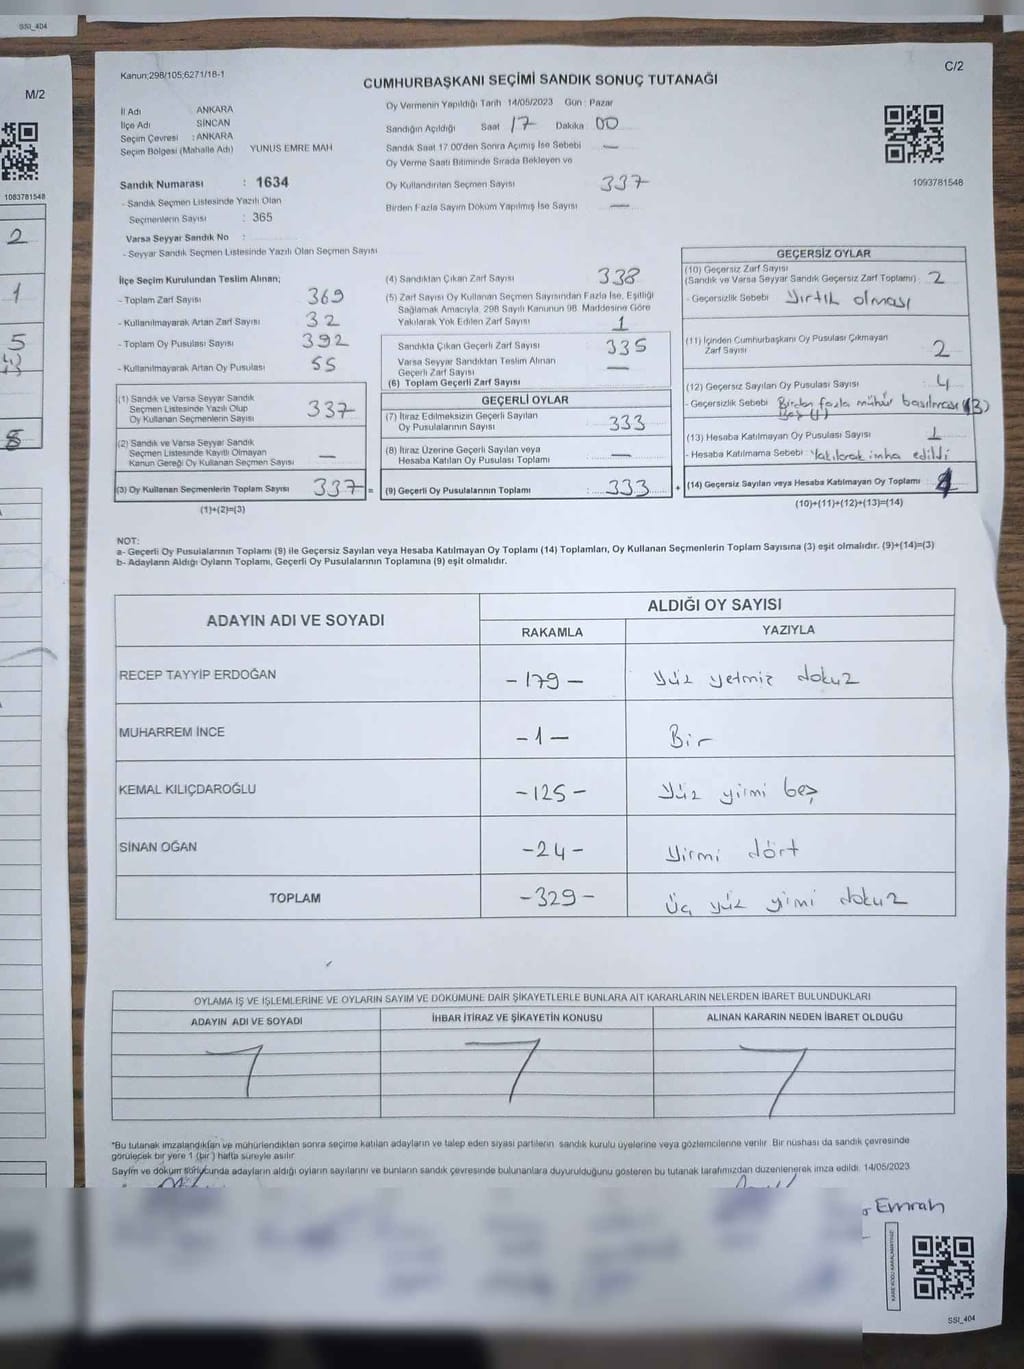 SSI_404
M/2
1083781548
2
1
5
8
Kanun;298/105;6271/18-1
C/2
CUMHURBAŞKANI SEÇİMİ SANDIK SONUÇ TUTANAĞI
1093781548
İl Adı ANKARA
İlçe Adı SİNCAN
Seçim Çevresi : ANKARA
Seçim Bölgesi (Mahalle Adı) YUNUS EMRE MAH
Sandık Numarası : 1634
- Sandık Seçmen Listesinde Yazılı Olan
Seçmenlerin Sayısı : 365
Varsa Seyyar Sandık No :
- Seyyar Sandık Seçmen Listesinde Yazılı Olan Seçmen Sayısı
Oy Vermenin Yapıldığı Tarih 14/05/2023 Gün : Pazar
Sandığın Açıldığı Saat 17 Dakika 00
Sandık Saat 17.00'den Sonra Açımış İse Sebebi —
Oy Verme Saati Bitiminde Sırada Bekleyen ve
Oy Kullandırılan Seçmen Sayısı 337
Birden Fazla Sayım Döküm Yapılmış İse Sayısı —
İlçe Seçim Kurulundan Teslim Alınan;
- Toplam Zarf Sayısı 369
- Kullanılmayarak Artan Zarf Sayısı 32
- Toplam Oy Pusulası Sayısı 392
- Kullanılmayarak Artan Oy Pusulası 55
(1) Sandık ve Varsa Seyyar Sandık
Seçmen Listesinde Yazılı Olup
Oy Kullanan Seçmenlerin Sayısı 337
(2) Sandık ve Varsa Seyyar Sandık
Seçmen Listesinde Kayıtlı Olmayan
Kanun Gereği Oy Kullanan Seçmen Sayısı —
(3) Oy Kullanan Seçmenlerin Toplam Sayısı 337 =
(1)+(2)=(3)
(4) Sandıktan Çıkan Zarf Sayısı 338
(5) Zarf Sayısı Oy Kullanan Seçmen Sayısından Fazla İse, Eşitliği
Sağlamak Amacıyla, 298 Sayılı Kanunun 98. Maddesine Göre
Yakılarak Yok Edilen Zarf Sayısı 1
Sandıkta Çıkan Geçerli Zarf Sayısı 335
Varsa Seyyar Sandıktan Teslim Alınan
Geçerli Zarf Sayısı —
(6) Toplam Geçerli Zarf Sayısı
GEÇERLİ OYLAR
(7) İtiraz Edilmeksizin Geçerli Sayılan
Oy Pusulalarının Sayısı 333
(8) İtiraz Üzerine Geçerli Sayılan veya
Hesaba Katılan Oy Pusulası Toplamı —
(9) Geçerli Oy Pusulalarının Toplamı : 333 +
GEÇERSİZ OYLAR
(10) Geçersiz Zarf Sayısı
(Sandık ve Varsa Seyyar Sandık Geçersiz Zarf Toplamı) 2
- Geçersizlik Sebebi Yırtık olması
(11) İçinden Cumhurbaşkanı Oy Pusulası Çıkmayan
Zarf Sayısı 2
(12) Geçersiz Sayılan Oy Pusulası Sayısı 4
- Geçersizlik Sebebi Birden fazla mühür basılması (3)
Boş (1)
(13) Hesaba Katılmayan Oy Pusulası Sayısı 1
- Hesaba Katılmama Sebebi: Yakılarak imha edildi
(14) Geçersiz Sayılan veya Hesaba Katılmayan Oy Toplamı
(10)+(11)+(12)+(13)=(14)
NOT:
a- Geçerli Oy Pusulalarının Toplamı (9) ile Geçersiz Sayılan veya Hesaba Katılmayan Oy Toplamı (14) Toplamları, Oy Kullanan Seçmenlerin Toplam Sayısına (3) eşit olmalıdır. (9)+(14)=(3)
b- Adayların Aldığı Oyların Toplamı, Geçerli Oy Pusulalarının Toplamına (9) eşit olmalıdır.
ADAYIN ADI VE SOYADI
ALDIĞI OY SAYISI
RAKAMLA YAZIYLA
RECEP TAYYİP ERDOĞAN -179- Yüz yetmiz dokuz
MUHARREM İNCE -1- Bir
KEMAL KILIÇDAROĞLU -125- Yüz yirmi beş
SİNAN OĞAN -24- Yirmi dört
TOPLAM -329- Üç yüz yirmi dokuz
OYLAMA İŞ VE İŞLEMLERİNE VE OYLARIN SAYIM VE DÖKÜMÜNE DAİR ŞİKAYETLERLE BUNLARA AİT KARARLARIN NELERDEN İBARET BULUNDUKLARI
ADAYIN ADI VE SOYADI İHBAR İTİRAZ VE ŞİKAYETİN KONUSU ALINAN KARARIN NEDEN İBARET OLDUĞU
*Bu tutanak imzalandıktan ve mühürlendikten sonra seçime katılan adayların ve talep eden siyasi partilerin sandık kurulu üyelerine veya gözlemcilerine verilir. Bir nüshası da sandık çevresinde
görülecek bir yere 1 (bir) hafta süreyle asılır.
Sayım ve döküm sonucunda adayların aldığı oyların sayılarını ve bunların sandık çevresinde bulunanlara duyurulduğunu gösteren bu tutanak tarafımızdan düzenlenerek imza edildi. 14/05/2023
Emrah
KARE KODU KARALAMAYINIZ
SSI_404